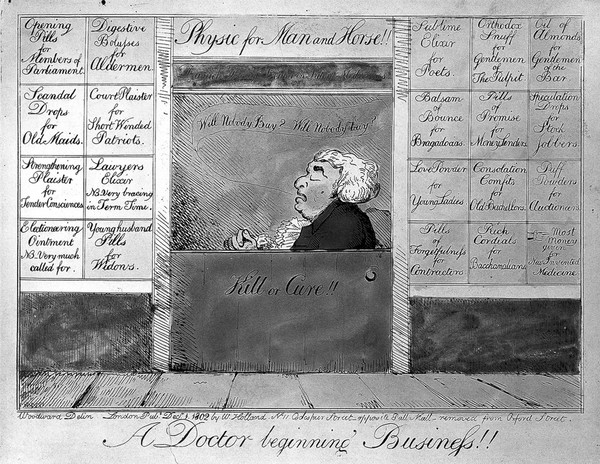 Physic for Man and Horse!!
Opening
Pills
for
Members of
Parliament.
Digestive
Bolusses
for
Aldermen
Scandal
Drops
for
Old Maids.
Court Plaister
for
Short Winded
Patriots.
Strengthening
Plaister
for
Tender Consciences
Lawyers
Elixir
NB. Very bracing
in Term Time.
Electioneering
Ointment
NB. Very much
called for.
Young husband
Pills
for
Widows.
Will Nobody Buy? Will Nobody buy?
Kill or Cure!!
Sublime
Elixir
for
Poets.
Orthodox
Snuff
for
Gentlemen
of
The Pulpit
Oil of
Almonds
for
Gentlemen
of the
Bar
Balsam
of
Bounce
for
Bragadocias
Pills
of
Promise
for
Money Lenders
Speculation
Drops
for
Stock
jobbers.
Love Powder
for
Young Ladies
Consolation
Comfits
for
Old Bachellors.
Puff
Powders
for
Auctioneers
Pills
of
Forgetfulness
for
Contractors
Rich
Cordials
for
Bacchanalians
Most
Money
given
for
New Invented
Medicine.
Woodward Delin London Pub. Decr 1, 1802 by W. Holland No. 11 Cockspur Street opposite Pall Mall removed from Oxford Street.
A Doctor beginning Business!!